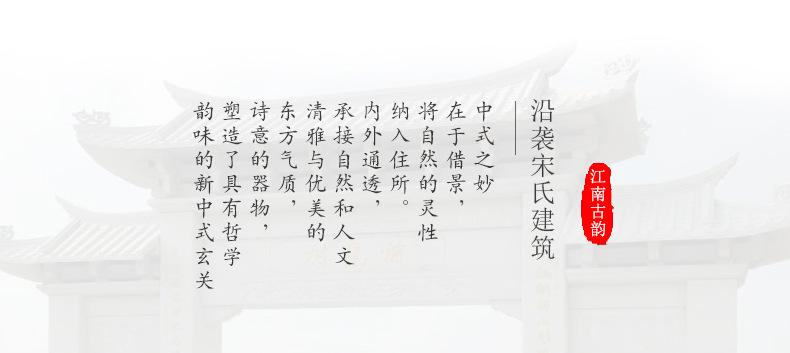 江南古韵
沿袭宋氏建筑
中式之妙
在于借景，
将自然的灵性
纳入住所。
内外通透，
承接自然和人文
清雅与优美的
东方气质，
诗意的器物，
塑造了具有哲学
韵味的新中式玄关